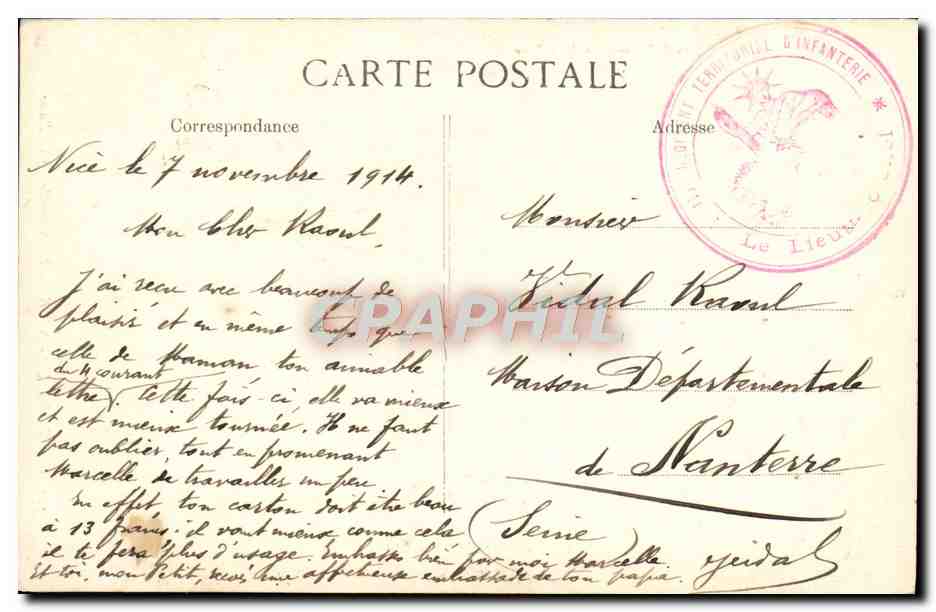 CARTE POSTALE
Correspondance
Adresse
TERRITORIAL D'INFANTERIE *
Le Lieut
Nice le 7 novembre 1914.
Mon Cher Raoul.
J'ai reçu avec beaucoup de
plaisir et en même temps que
celle de Maman ton aimable
du 4 courant
lettre. Cette fois-ci, elle va mieux
et est mieux tournée. Il ne faut
pas oublier, tout en promenant
Marcelle de travailler un peu
En effet ton carton doit être beau
à 13 francs; il vaut mieux comme cela
il te fera plus d'usage. Embrasse bien pour moi Marcelle.
Et toi, mon Petit, reçois une affectueuse embrassade de ton papa.
Vidal
Monsieur
Vidal Raoul
Maison Départementale
de Nanterre
(Seine)
CPAPHIL